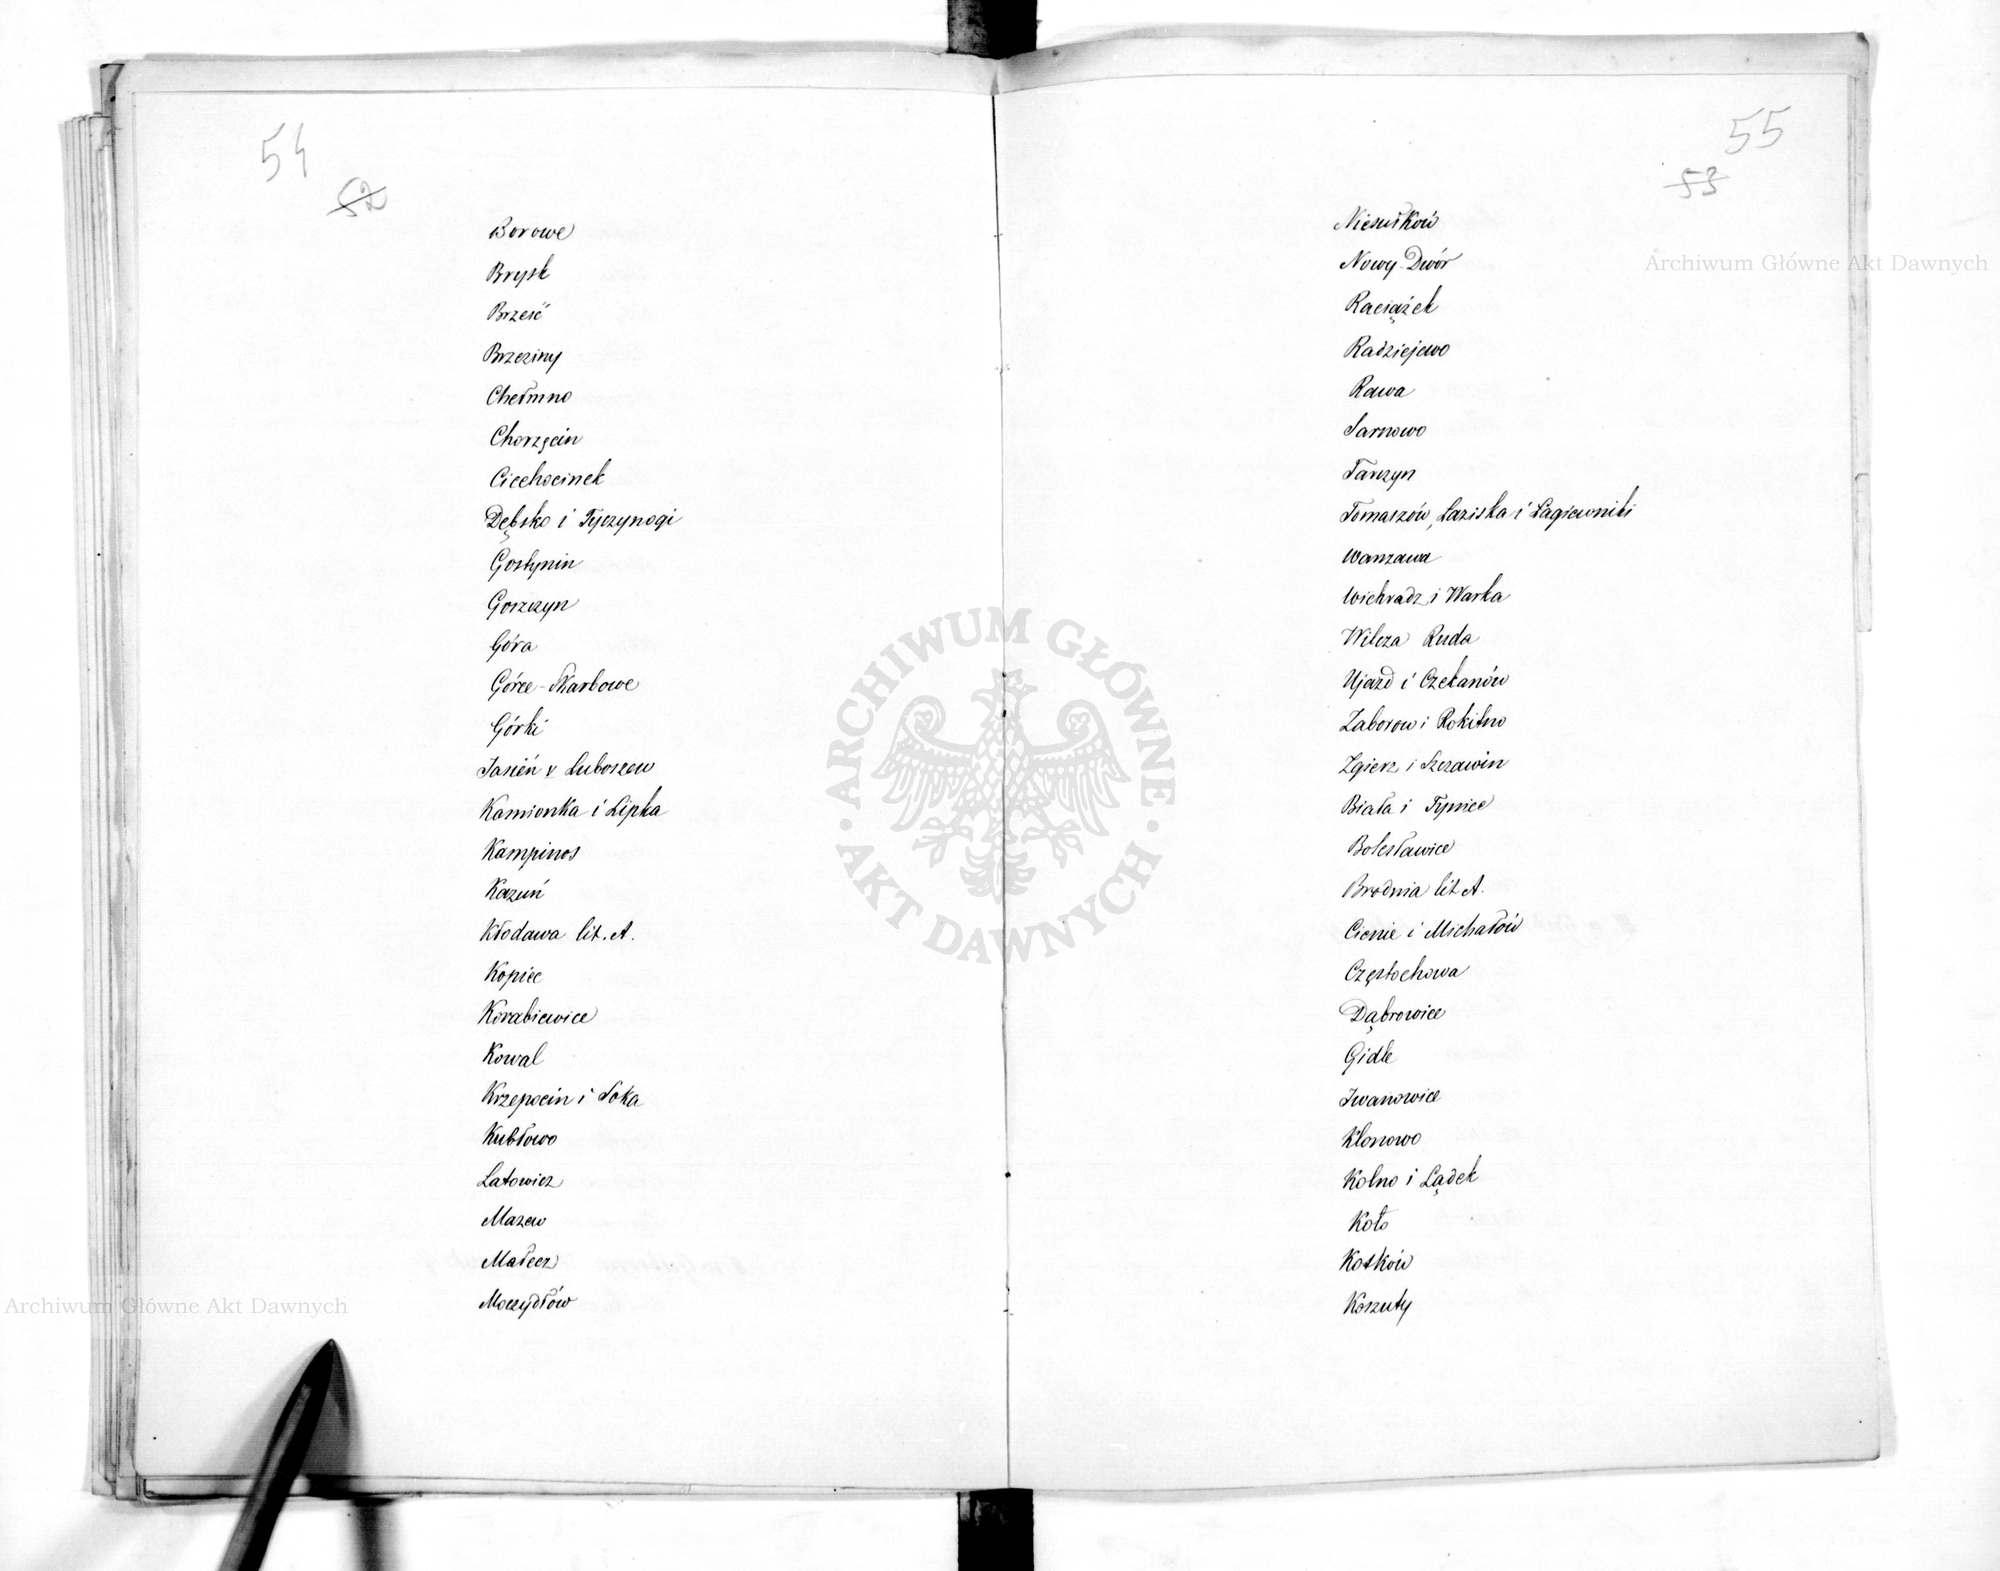 54
52
Borowe
Brysk
Brześć
Brzeziny
Chełmno
Chorzęcin
Ciechocinek
Dębsko i Tyczynogi
Gostynin
Goszczyn
Góra
Górce-Skarbowe
Górki
Jasień v Luboszew
Kamionka i Lipka
Kampinos
Kazuń
Kłodawa lit. A.
Kopiec
Korabiewice
Kowal
Krzepocin i Soka
Kubłowo
Latowicz
Mazew
Małecz
Moczydłów
55
53
Niesułków
Nowy-Dwór
Raciążek
Radziejewo
Rawa
Sarnowo
Tarczyn
Tomaszów, Łaziska i Łagiewniki
Warszawa
Wichradz i Warka
Wilcza Ruda
Ujazd i Czekanów
Zaborow i Rokitno
Zgierz i Szczawin
Biała i Tynice
Bolesławice
Brodnia lit A.
Cienie i Michałów
Częstochowa
Dąbrowice
Gidle
Iwanowice
Klonowo
Kolno i Lądek
Koło
Kotków
Koszuty
Archiwum Główne Akt Dawnych
ARCHIWUM GŁÓWNE AKT DAWNYCH
Archiwum Główne Akt Dawnych